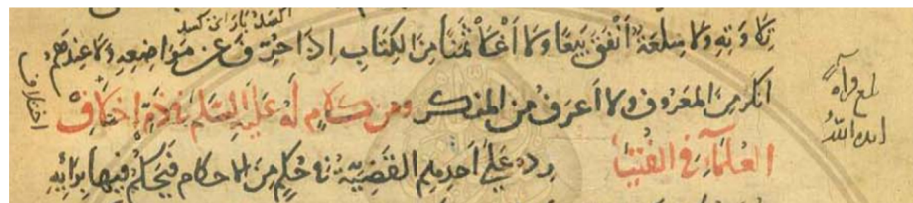 تلاوته ولا سلعة أنفق بيعا ولا أغلا ثمنا من الكتاب إذا حرف عن مواضعه ولا عندهم
أنكر من المعروف ولا أعرف من المنكر ومن كلام له عليه السلم في ذم اختلاف
العلماء في الفتيا ترد على أحدهم القضية في حكم من الأحكام فيحكم فيها برأيه
اختلاف